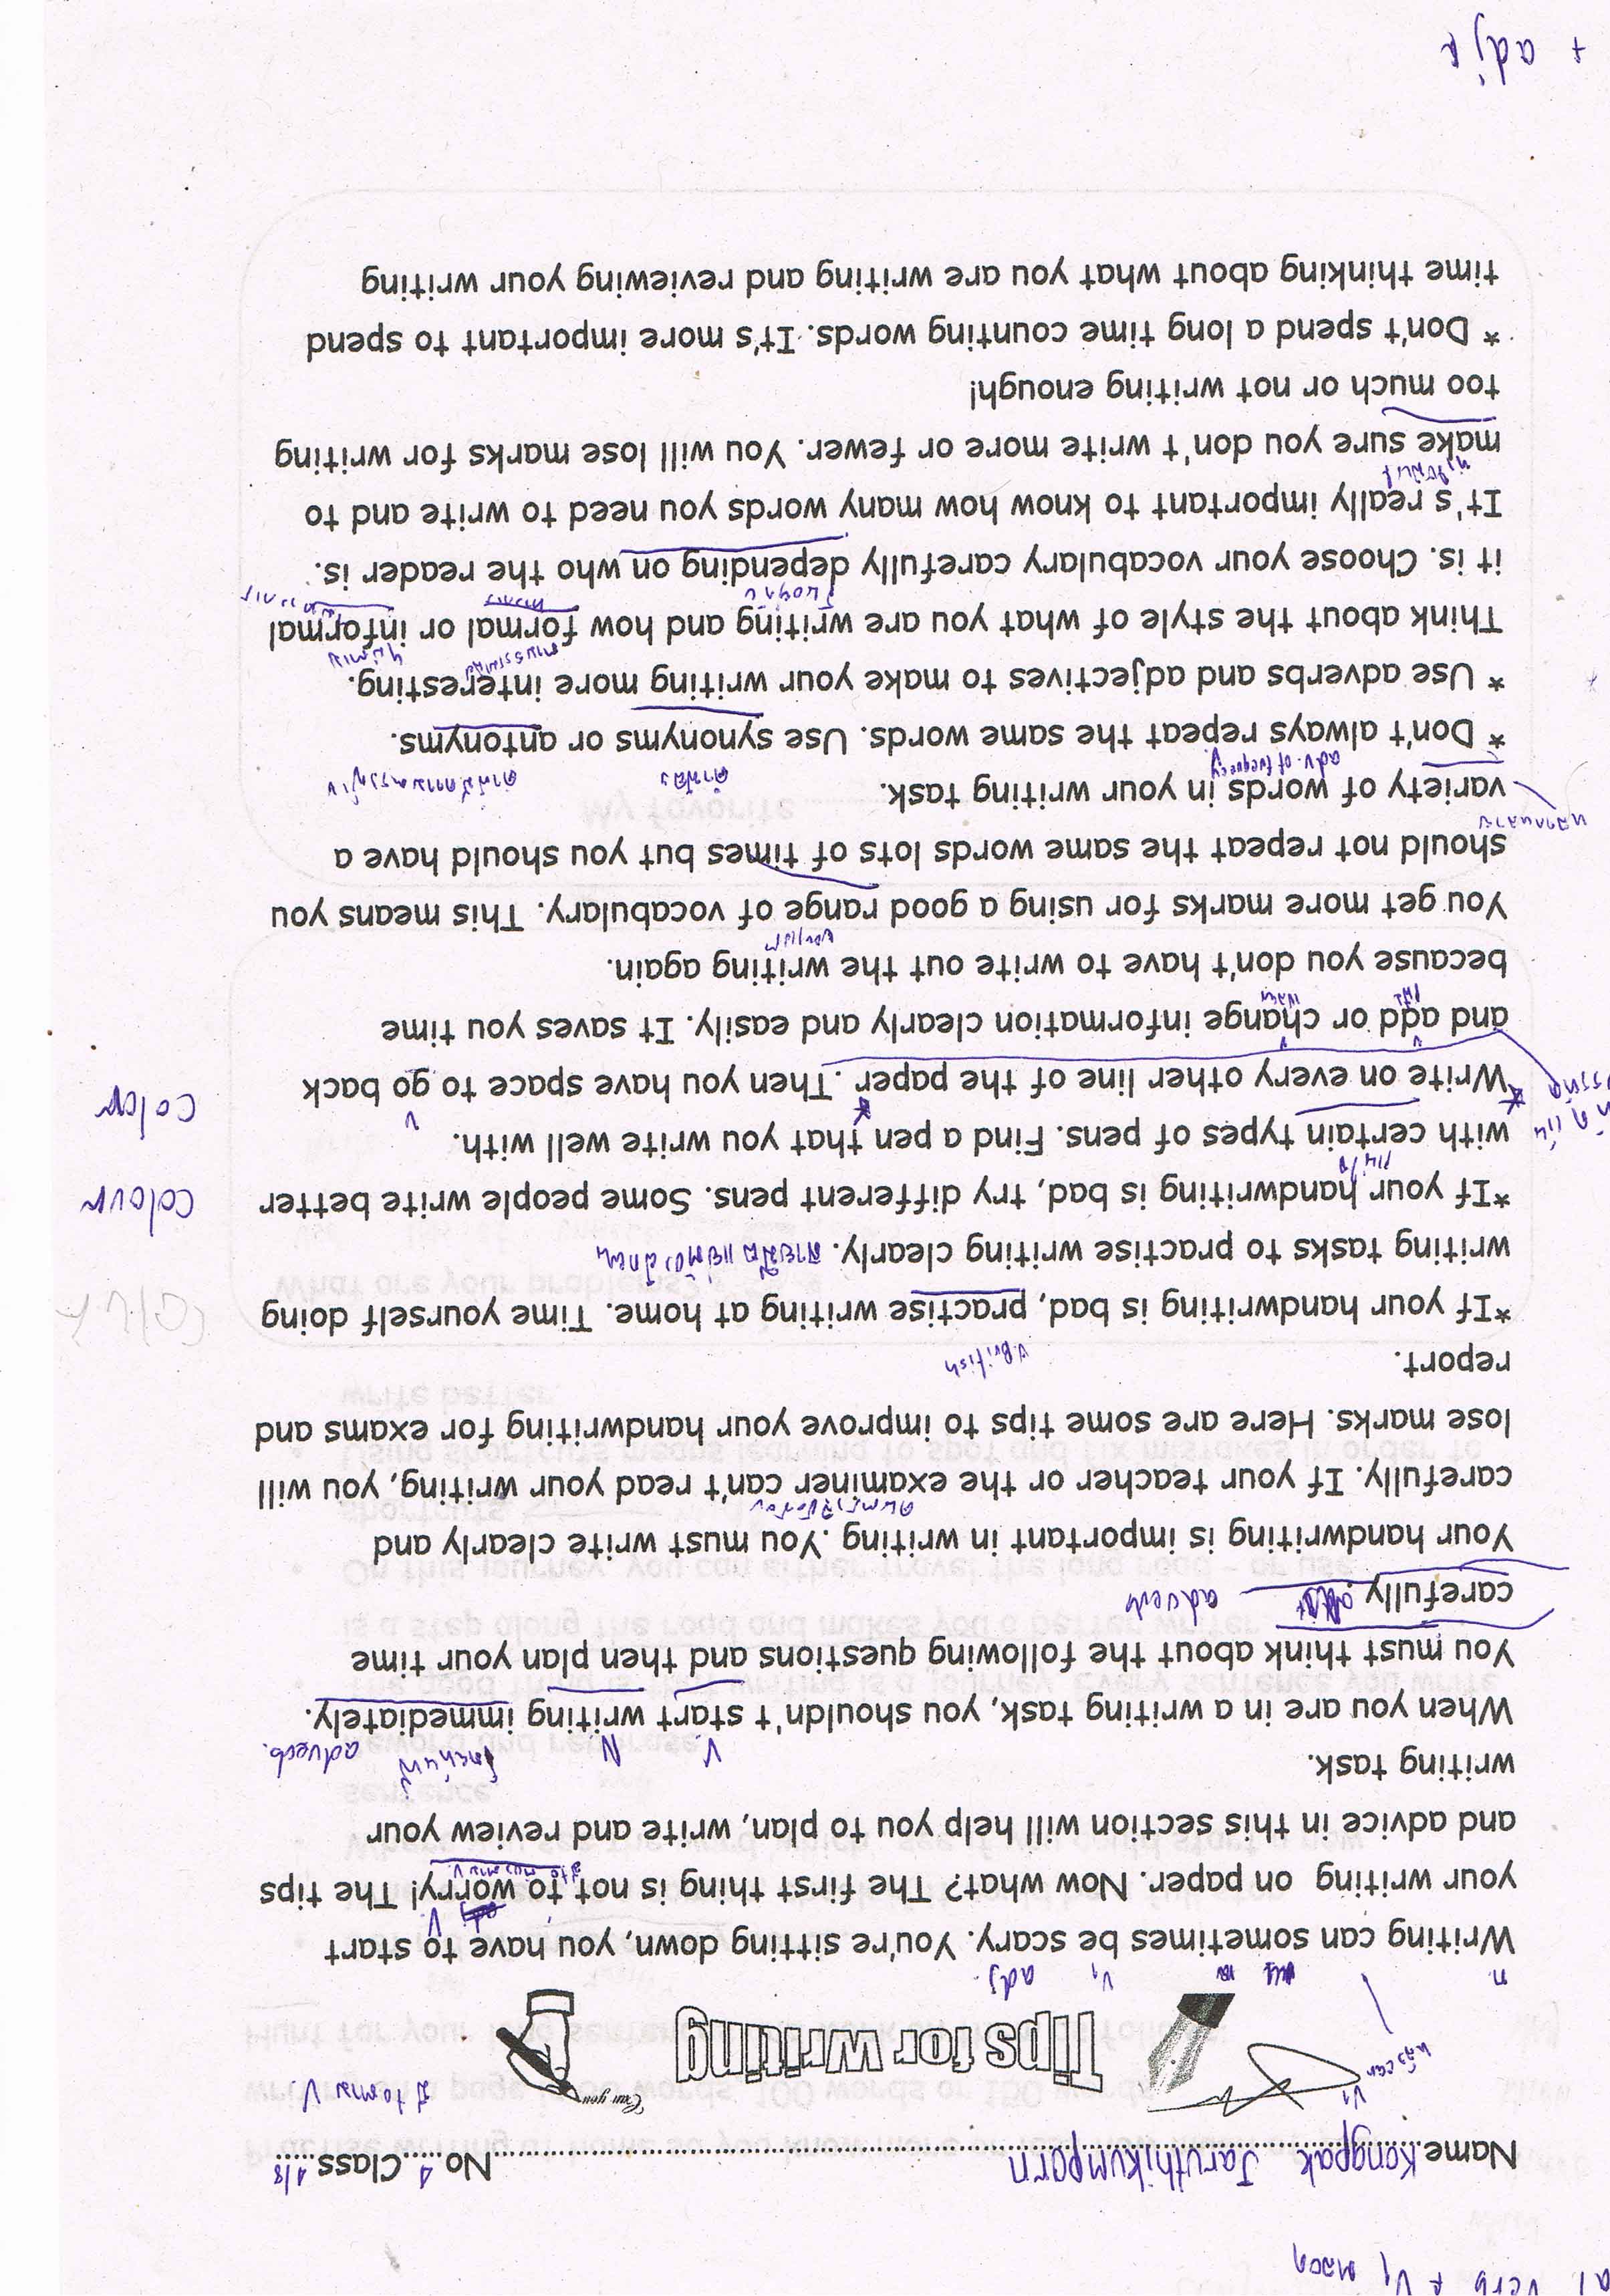 Name Kongpak Jaruthikumporn No. 4 Class 4/8
Can you
Tips for writing
n. V1 adj.
Writing can sometimes be scary. You're sitting down, you have to start
V
your writing on paper. Now what? The first thing is not to worry! The tips
and advice in this section will help you to plan, write and review your
writing task.
V. N adverb.
When you are in a writing task, you shouldn't start writing immediately.
You must think about the following questions and then plan your time
carefully. adverb
Your handwriting is important in writing. You must write clearly and
carefully. If your teacher or the examiner can't read your writing, you will
lose marks. Here are some tips to improve your handwriting for exams and
report.
v.British
*If your handwriting is bad, practise writing at home. Time yourself doing
writing tasks to practise writing clearly.
*If your handwriting is bad, try different pens. Some people write better
colour
with certain types of pens. Find a pen that you write well with.
Write on every other line of the paper. Then you have space to go back
color
and add or change information clearly and easily. It saves you time
because you don't have to write out the writing again.
You get more marks for using a good range of vocabulary. This means you
should not repeat the same words lots of times but you should have a
หลากหลาย
variety of words in your writing task.
adv. of frequency
* Don't always repeat the same words. Use synonyms or antonyms.
* Use adverbs and adjectives to make your writing more interesting.
Think about the style of what you are writing and how formal or informal
it is. Choose your vocabulary carefully depending on who the reader is.
It's really important to know how many words you need to write and to
make sure you don't write more or fewer. You will lose marks for writing
too much or not writing enough!
* Don't spend a long time counting words. It's more important to spend
time thinking about what you are writing and reviewing your writing
+ adj